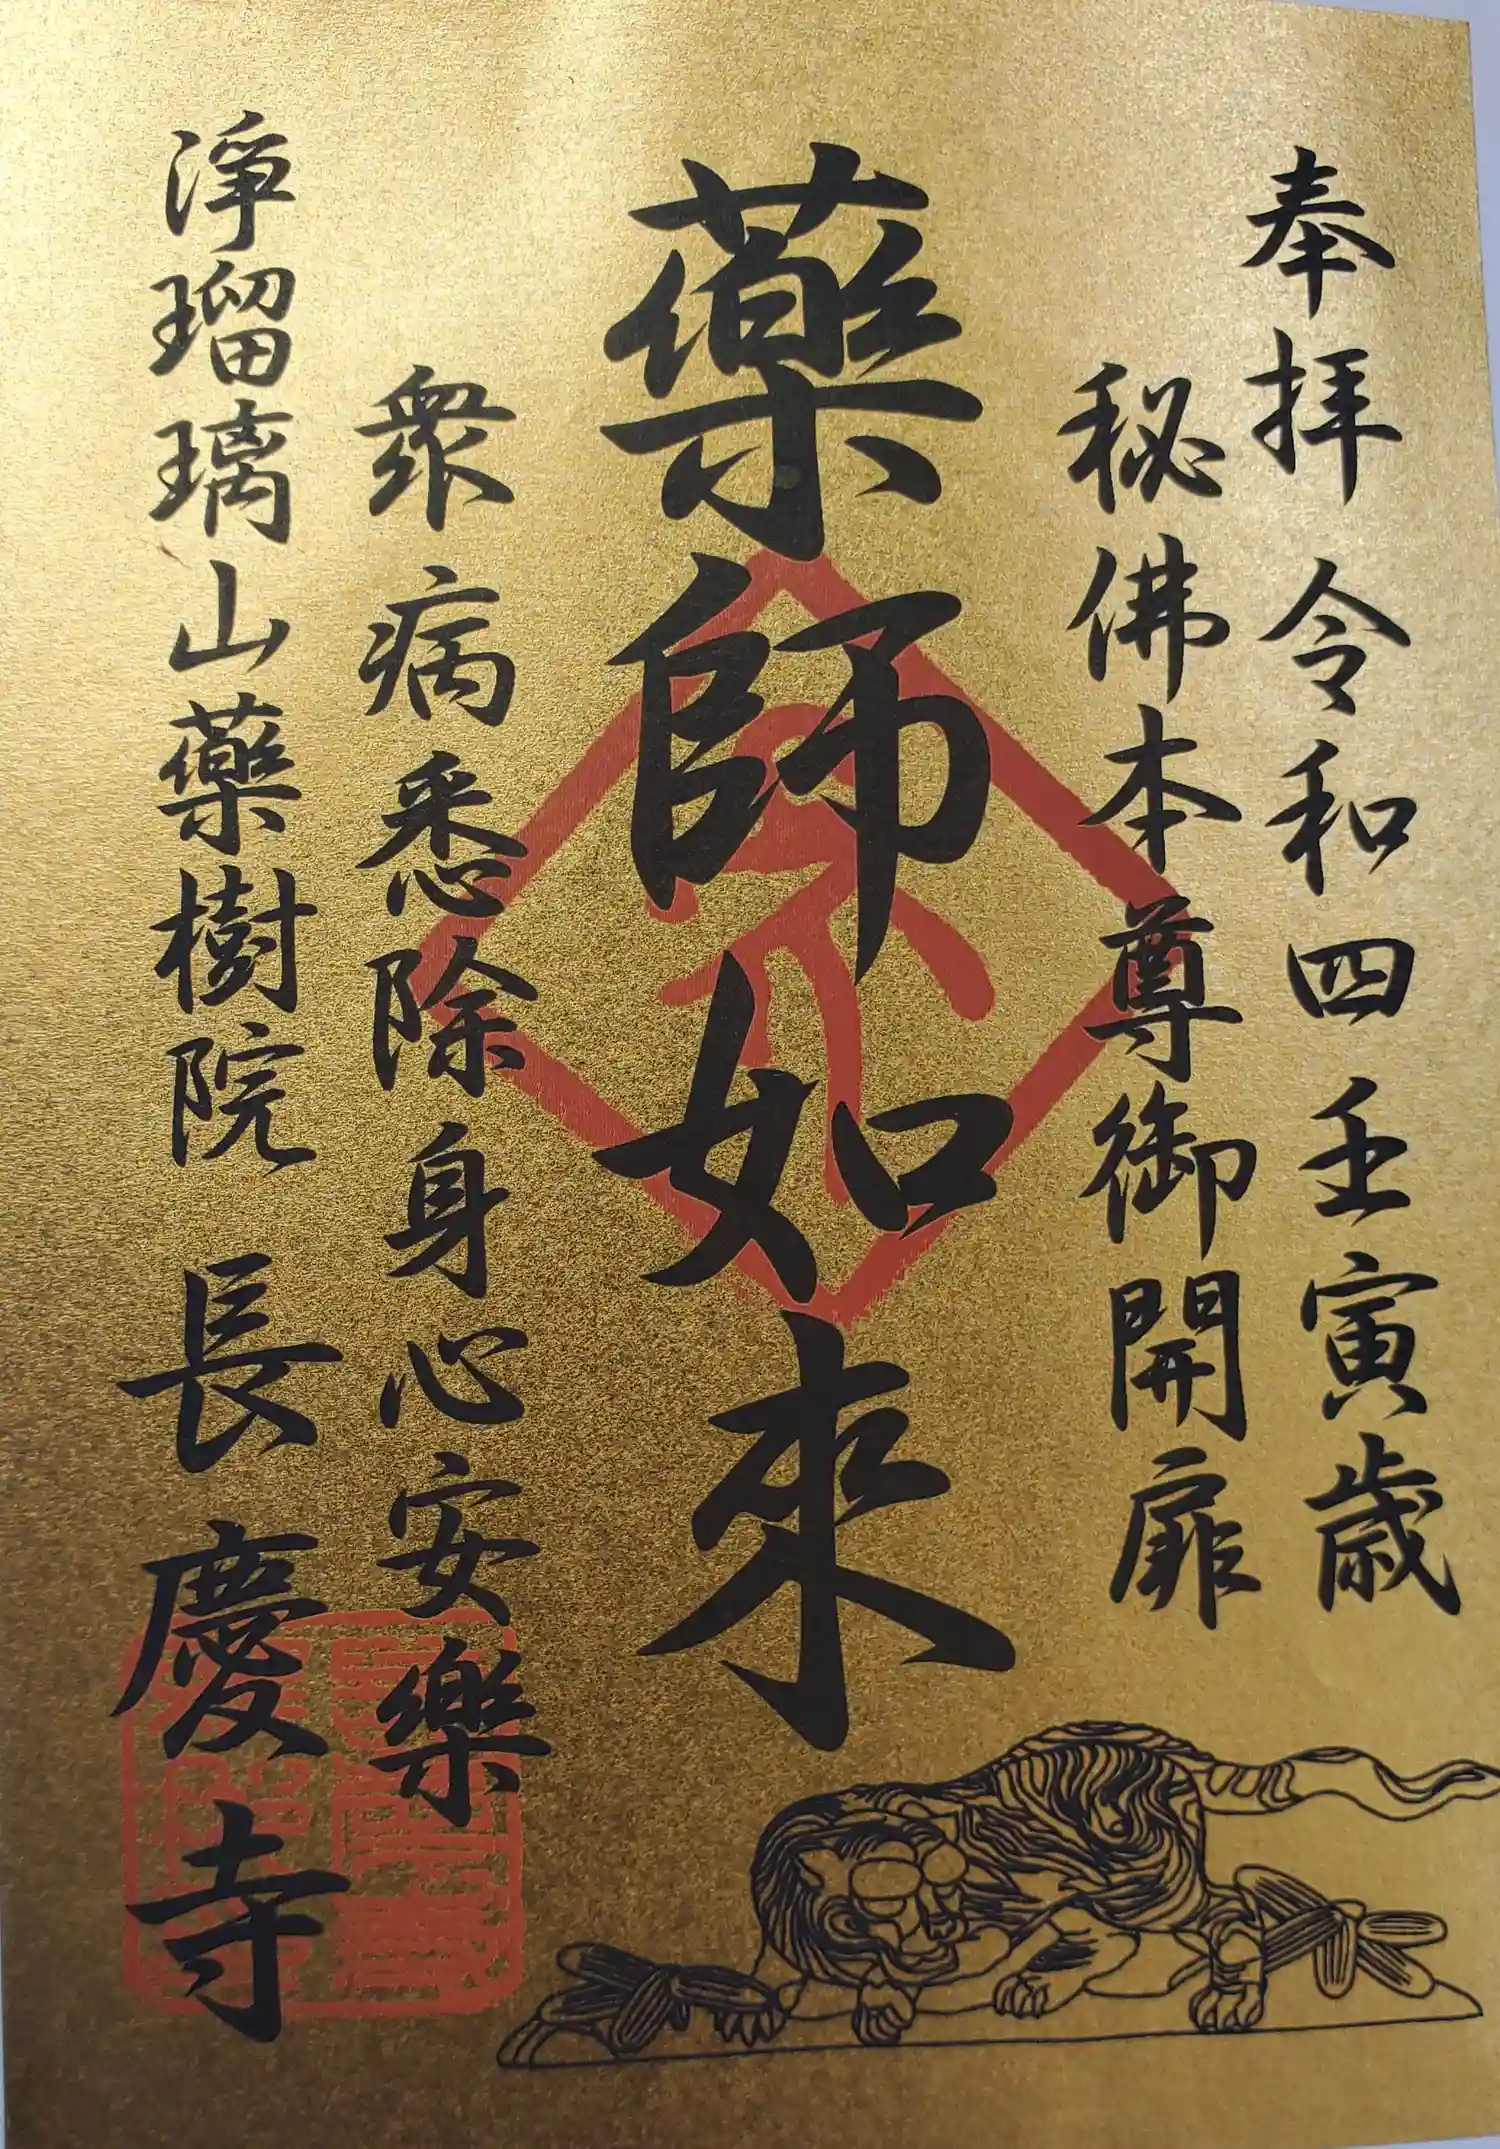 奉拝 令和四壬寅歳
秘佛本尊御開扉
藥師如來
衆病悉除身心安樂
淨瑠璃山藥樹院 長慶寺